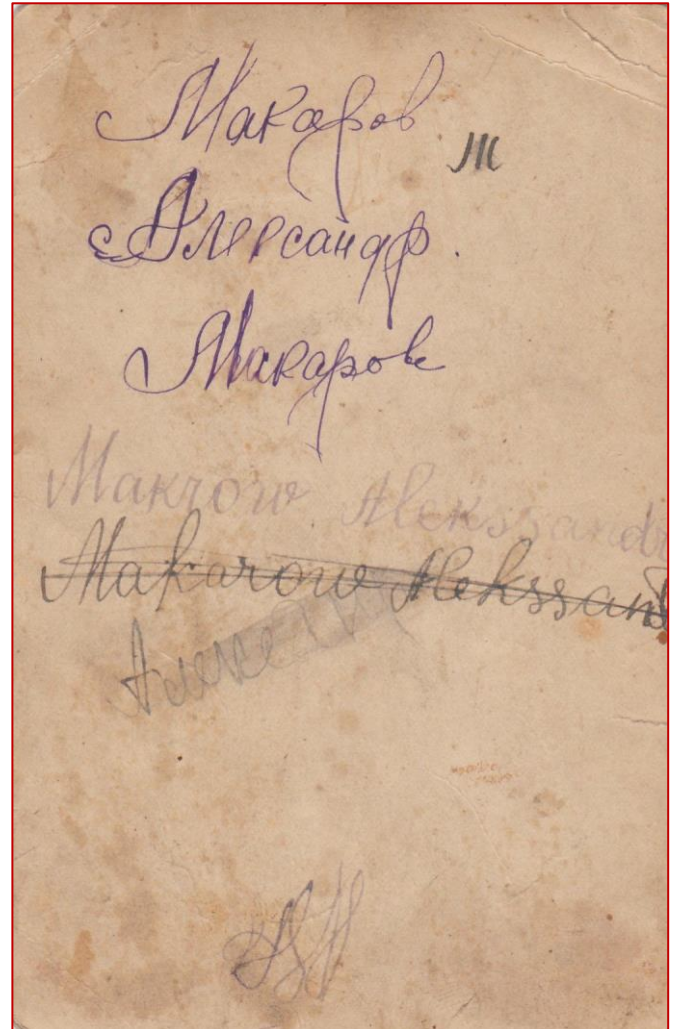 Макаров
ж
Александр.
Макаров
Makrow Alekssandr
Makarow Alekssand